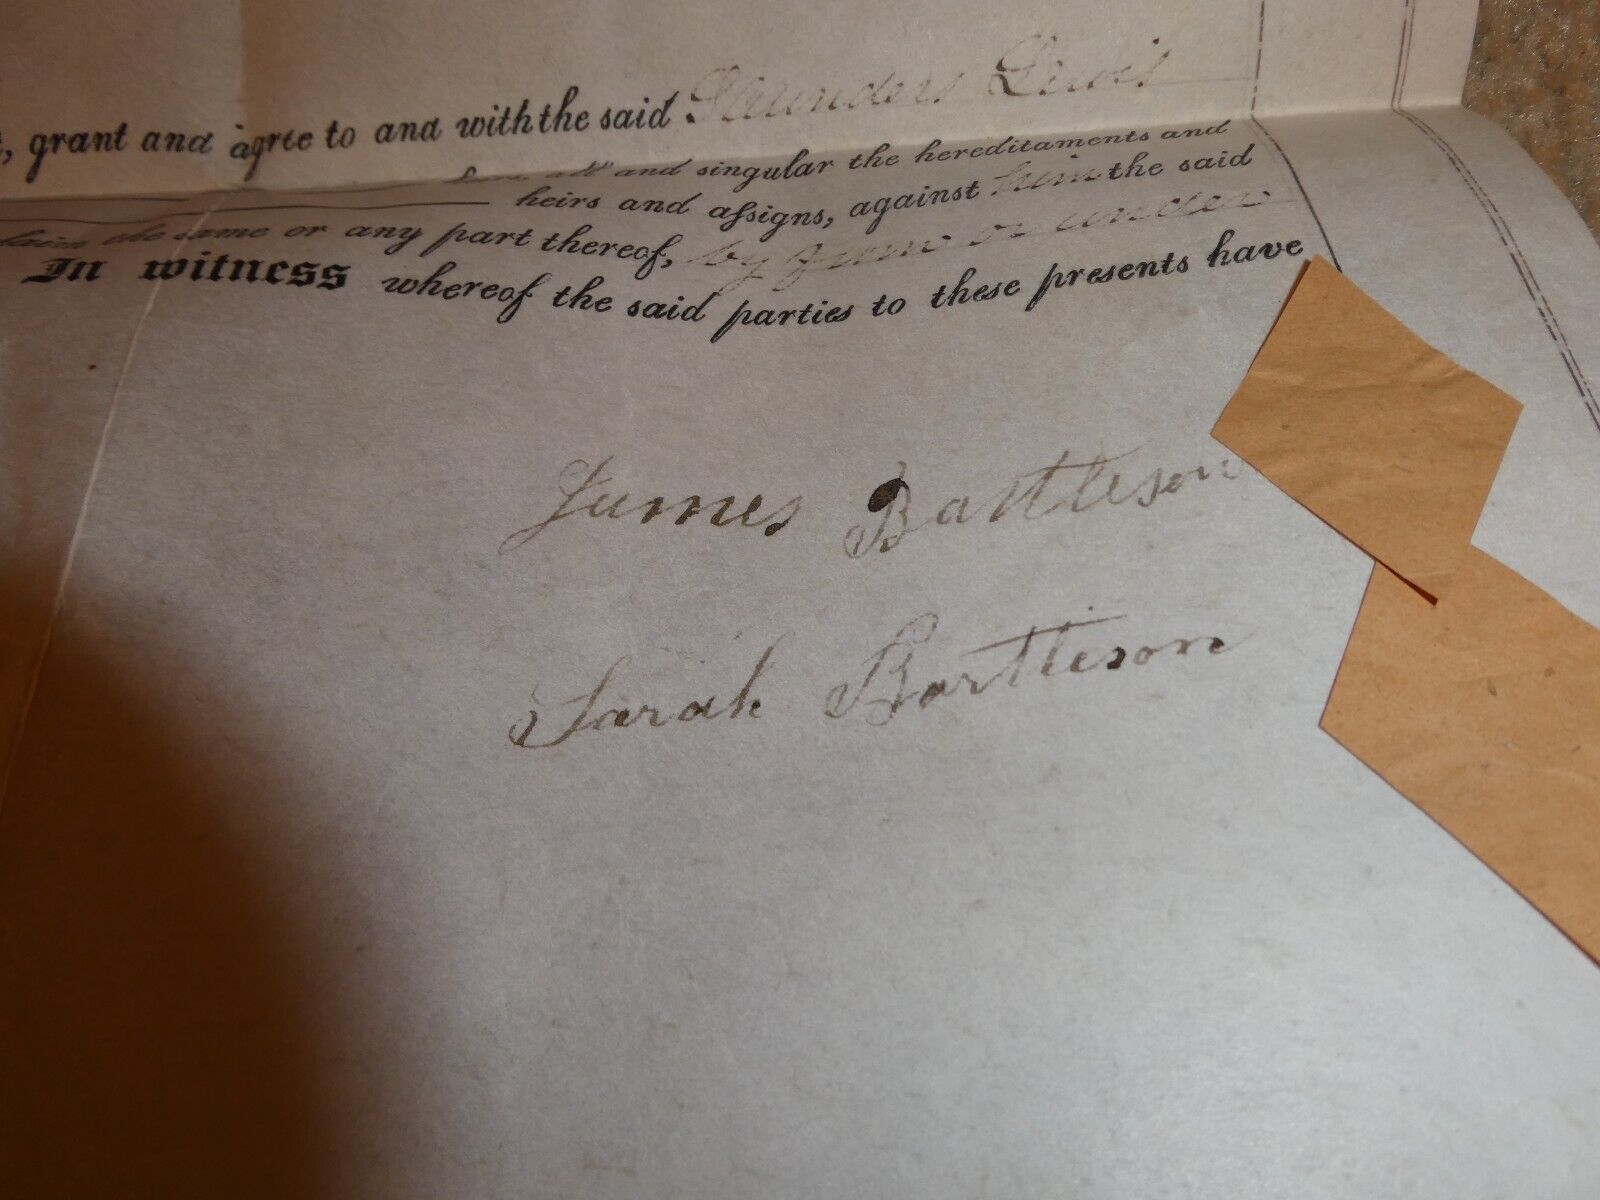 , grant and agree to and with the said Saunders Lewis
and singular the hereditaments and
heirs and aſsigns, against him the said
claim the same or any part thereof, by from or under
In witness whereof the said parties to these presents have
James Bartleson
Sarah Bartleson